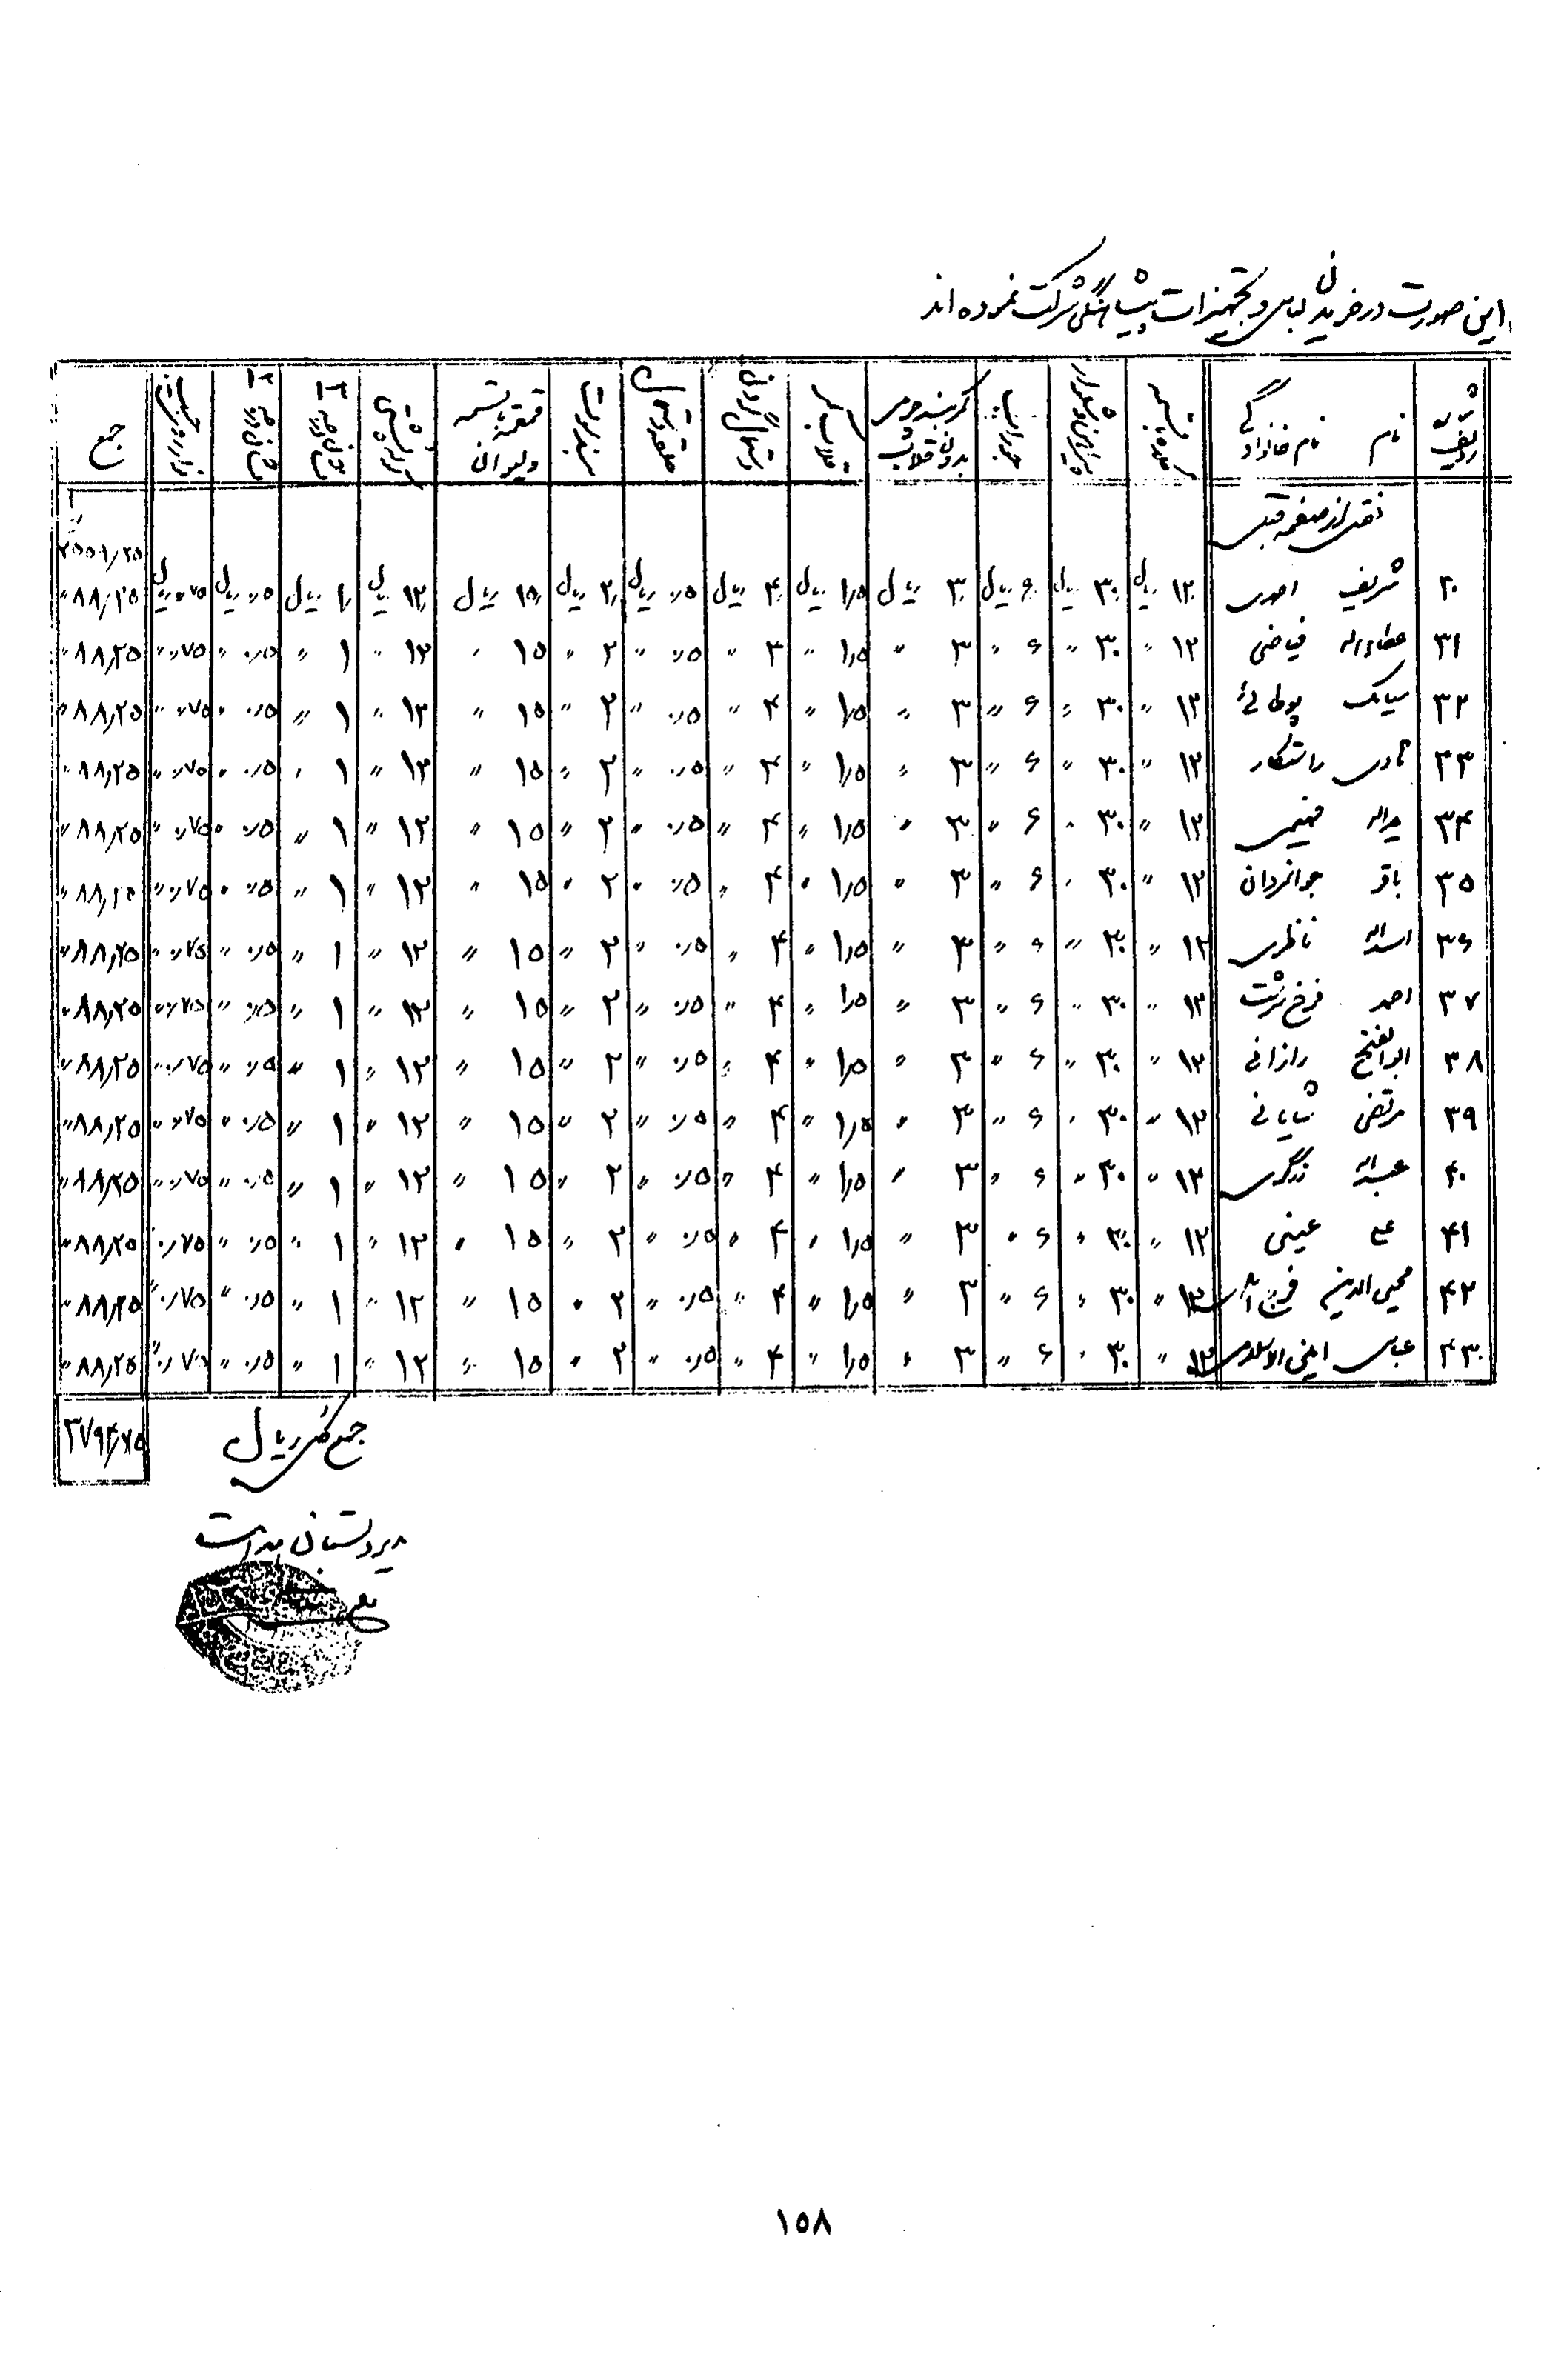 این صورت در خریدن لباس و تجهیزات پیشاهنگی شرکت نموده اند
ردیف نام نام خانوادگی کلاه با پیراهن و شلوار جوراب کمربند چرمی بدون قلاب قلاب دستمال گردن حلقه دستمال بند سوت قمقمه با تسمه و لیوانی کوله پشتی جمع
نقل از صفحه قبل
۳۰ شریف احمدی ۱۲ ریال ۳۰ ریال ۶ ریال ۳ ریال ۱٫۵ ریال ۴ ریال ۰٫۵ ریال ۲ ریال ۱۵ ریال ۱۲ ریال ۱ ریال ۰٫۵ ریال ۰٫۷۵ ریال ۸۸٫۲۵ "
۳۱ عطاءاله فیاضی ۱۲ " ۳۰ " ۶ " ۳ " ۱٫۵ " ۴ " ۰٫۵ " ۲ " ۱۵ " ۱۲ " ۱ " ۰٫۵ " ۰٫۷۵ " ۸۸٫۲۵ "
۳۲ سیامک ۱۲ " ۳۰ " ۶ " ۳ " ۱٫۵ " ۴ " ۰٫۵ " ۲ " ۱۵ " ۱۲ " ۱ " ۰٫۵ " ۰٫۷۵ " ۸۸٫۲۵ "
۳۳ راستکار ۱۲ " ۳۰ " ۶ " ۳ " ۱٫۵ " ۴ " ۰٫۵ " ۲ " ۱۵ " ۱۲ " ۱ " ۰٫۵ " ۰٫۷۵ " ۸۸٫۲۵ "
۳۴ یداله فهیمی ۱۲ " ۳۰ " ۶ " ۳ " ۱٫۵ " ۴ " ۰٫۵ " ۲ " ۱۵ " ۱۲ " ۱ " ۰٫۵ " ۰٫۷۵ " ۸۸٫۲۵ "
۳۵ باقر جوانمردان ۱۲ " ۳۰ " ۶ " ۳ " ۱٫۵ " ۴ " ۰٫۵ " ۲ " ۱۵ " ۱۲ " ۱ " ۰٫۵ " ۰٫۷۵ " ۸۸٫۲۵ "
۳۶ اسداله ناظری ۱۲ " ۳۰ " ۶ " ۳ " ۱٫۵ " ۴ " ۰٫۵ " ۲ " ۱۵ " ۱۲ " ۱ " ۰٫۵ " ۰٫۷۵ " ۸۸٫۲۵ "
۳۷ احمد ۱۲ " ۳۰ " ۶ " ۳ " ۱٫۵ " ۴ " ۰٫۵ " ۲ " ۱۵ " ۱۲ " ۱ " ۰٫۵ " ۰٫۷۵ " ۸۸٫۲۵ "
۳۸ ابوالفتح رازانی ۱۲ " ۳۰ " ۶ " ۳ " ۱٫۵ " ۴ " ۰٫۵ " ۲ " ۱۵ " ۱۲ " ۱ " ۰٫۵ " ۰٫۷۵ " ۸۸٫۲۵ "
۳۹ مرتضی شایانی ۱۲ " ۳۰ " ۶ " ۳ " ۱٫۵ " ۴ " ۰٫۵ " ۲ " ۱۵ " ۱۲ " ۱ " ۰٫۵ " ۰٫۷۵ " ۸۸٫۲۵ "
۴۰ عبداله زرگری ۱۲ " ۳۰ " ۶ " ۳ " ۱٫۵ " ۴ " ۰٫۵ " ۲ " ۱۵ " ۱۲ " ۱ " ۰٫۵ " ۰٫۷۵ " ۸۸٫۲۵ "
۴۱ علی عینی ۱۲ " ۳۰ " ۶ " ۳ " ۱٫۵ " ۴ " ۰٫۵ " ۲ " ۱۵ " ۱۲ " ۱ " ۰٫۵ " ۰٫۷۵ " ۸۸٫۲۵ "
۴۲ محیی الدین ۱۲ " ۳۰ " ۶ " ۳ " ۱٫۵ " ۴ " ۰٫۵ " ۲ " ۱۵ " ۱۲ " ۱ " ۰٫۵ " ۰٫۷۵ " ۸۸٫۲۵ "
۴۳ عباس ۱۲ " ۳۰ " ۶ " ۳ " ۱٫۵ " ۴ " ۰٫۵ " ۲ " ۱۵ " ۱۲ " ۱ " ۰٫۵ " ۰٫۷۵ " ۸۸٫۲۵ "
جمع کل ریال ۳۷۹۴٫۷۵
۱۵۸